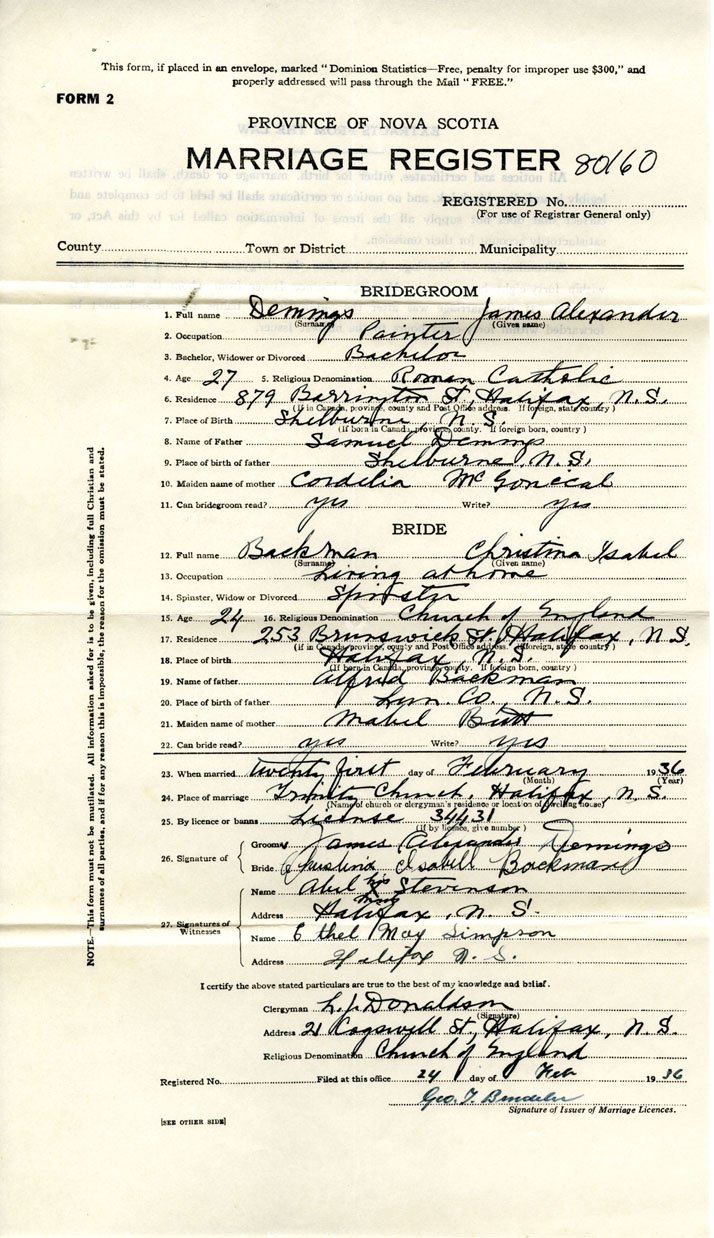 This form, if placed in an envelope, marked "Dominion Statistics—Free, penalty for improper use $300," and
properly addressed will pass through the Mail "FREE."
FORM 2
PROVINCE OF NOVA SCOTIA
MARRIAGE REGISTER 80160
REGISTERED No.
(For use of Registrar General only)
County Town or District Municipality
BRIDEGROOM
1. Full name Demings James Alexander
(Surname) (Given name)
2. Occupation Painter
3. Bachelor, Widower or Divorced Bachelor
4. Age 27 5. Religious Denomination Roman Catholic
6. Residence 879 Barrington St, Halifax, N.S.
(If in Canada, province, county and Post Office address. If foreign, state country)
7. Place of Birth Shelburne N.S.
(If born in Canada, province, county. If foreign born, country)
8. Name of Father Samuel Demings
9. Place of birth of father Shelburne, N.S.
10. Maiden name of mother Cordelia McGonecal
11. Can bridegroom read? yes Write? yes
BRIDE
12. Full name Backman Christina Isabel
(Surname) (Given name)
13. Occupation Living at home
14. Spinster, Widow or Divorced Spinster
15. Age 24 16. Religious Denomination Church of England
17. Residence 253 Brunswick St, Halifax, N.S.
(If in Canada, province, county and Post Office address. If foreign, state country)
18. Place of birth Halifax, N.S.
(If born in Canada, province, county. If foreign born, country)
19. Name of father Alfred Backman
20. Place of birth of father Lun Co. N.S.
21. Maiden name of mother Mabel
22. Can bride read? yes Write? yes
23. When married twenty first day of February 1936
(Month) (Year)
24. Place of marriage Trinity Church, Halifax, N.S.
(Name of church or clergyman's residence or location of dwelling house)
25. By licence or banns License 34431
(If by licence, give number)
26. Signature of Groom James Alexander Demings
Bride Christina Isabell Backman
27. Signatures of Witnesses
Name Abel his Stevenson
mark
Address Halifax, N.S.
Name Ethel May Simpson
Address Halifax N.S.
I certify the above stated particulars are true to the best of my knowledge and belief.
Clergyman L.J. Donaldson
(Signature)
Address 21 Cogswell St, Halifax, N.S.
Religious Denomination Church of England
Registered No. Filed at this office 24 day of Feb 1936
Geo. T.
Signature of Issuer of Marriage Licences.
[SEE OTHER SIDE]
NOTE.—This form must not be mutilated. All information asked for is to be given, including full Christian and
surnames of all parties, and if for any reason this is impossible, the reason for the omission must be stated.